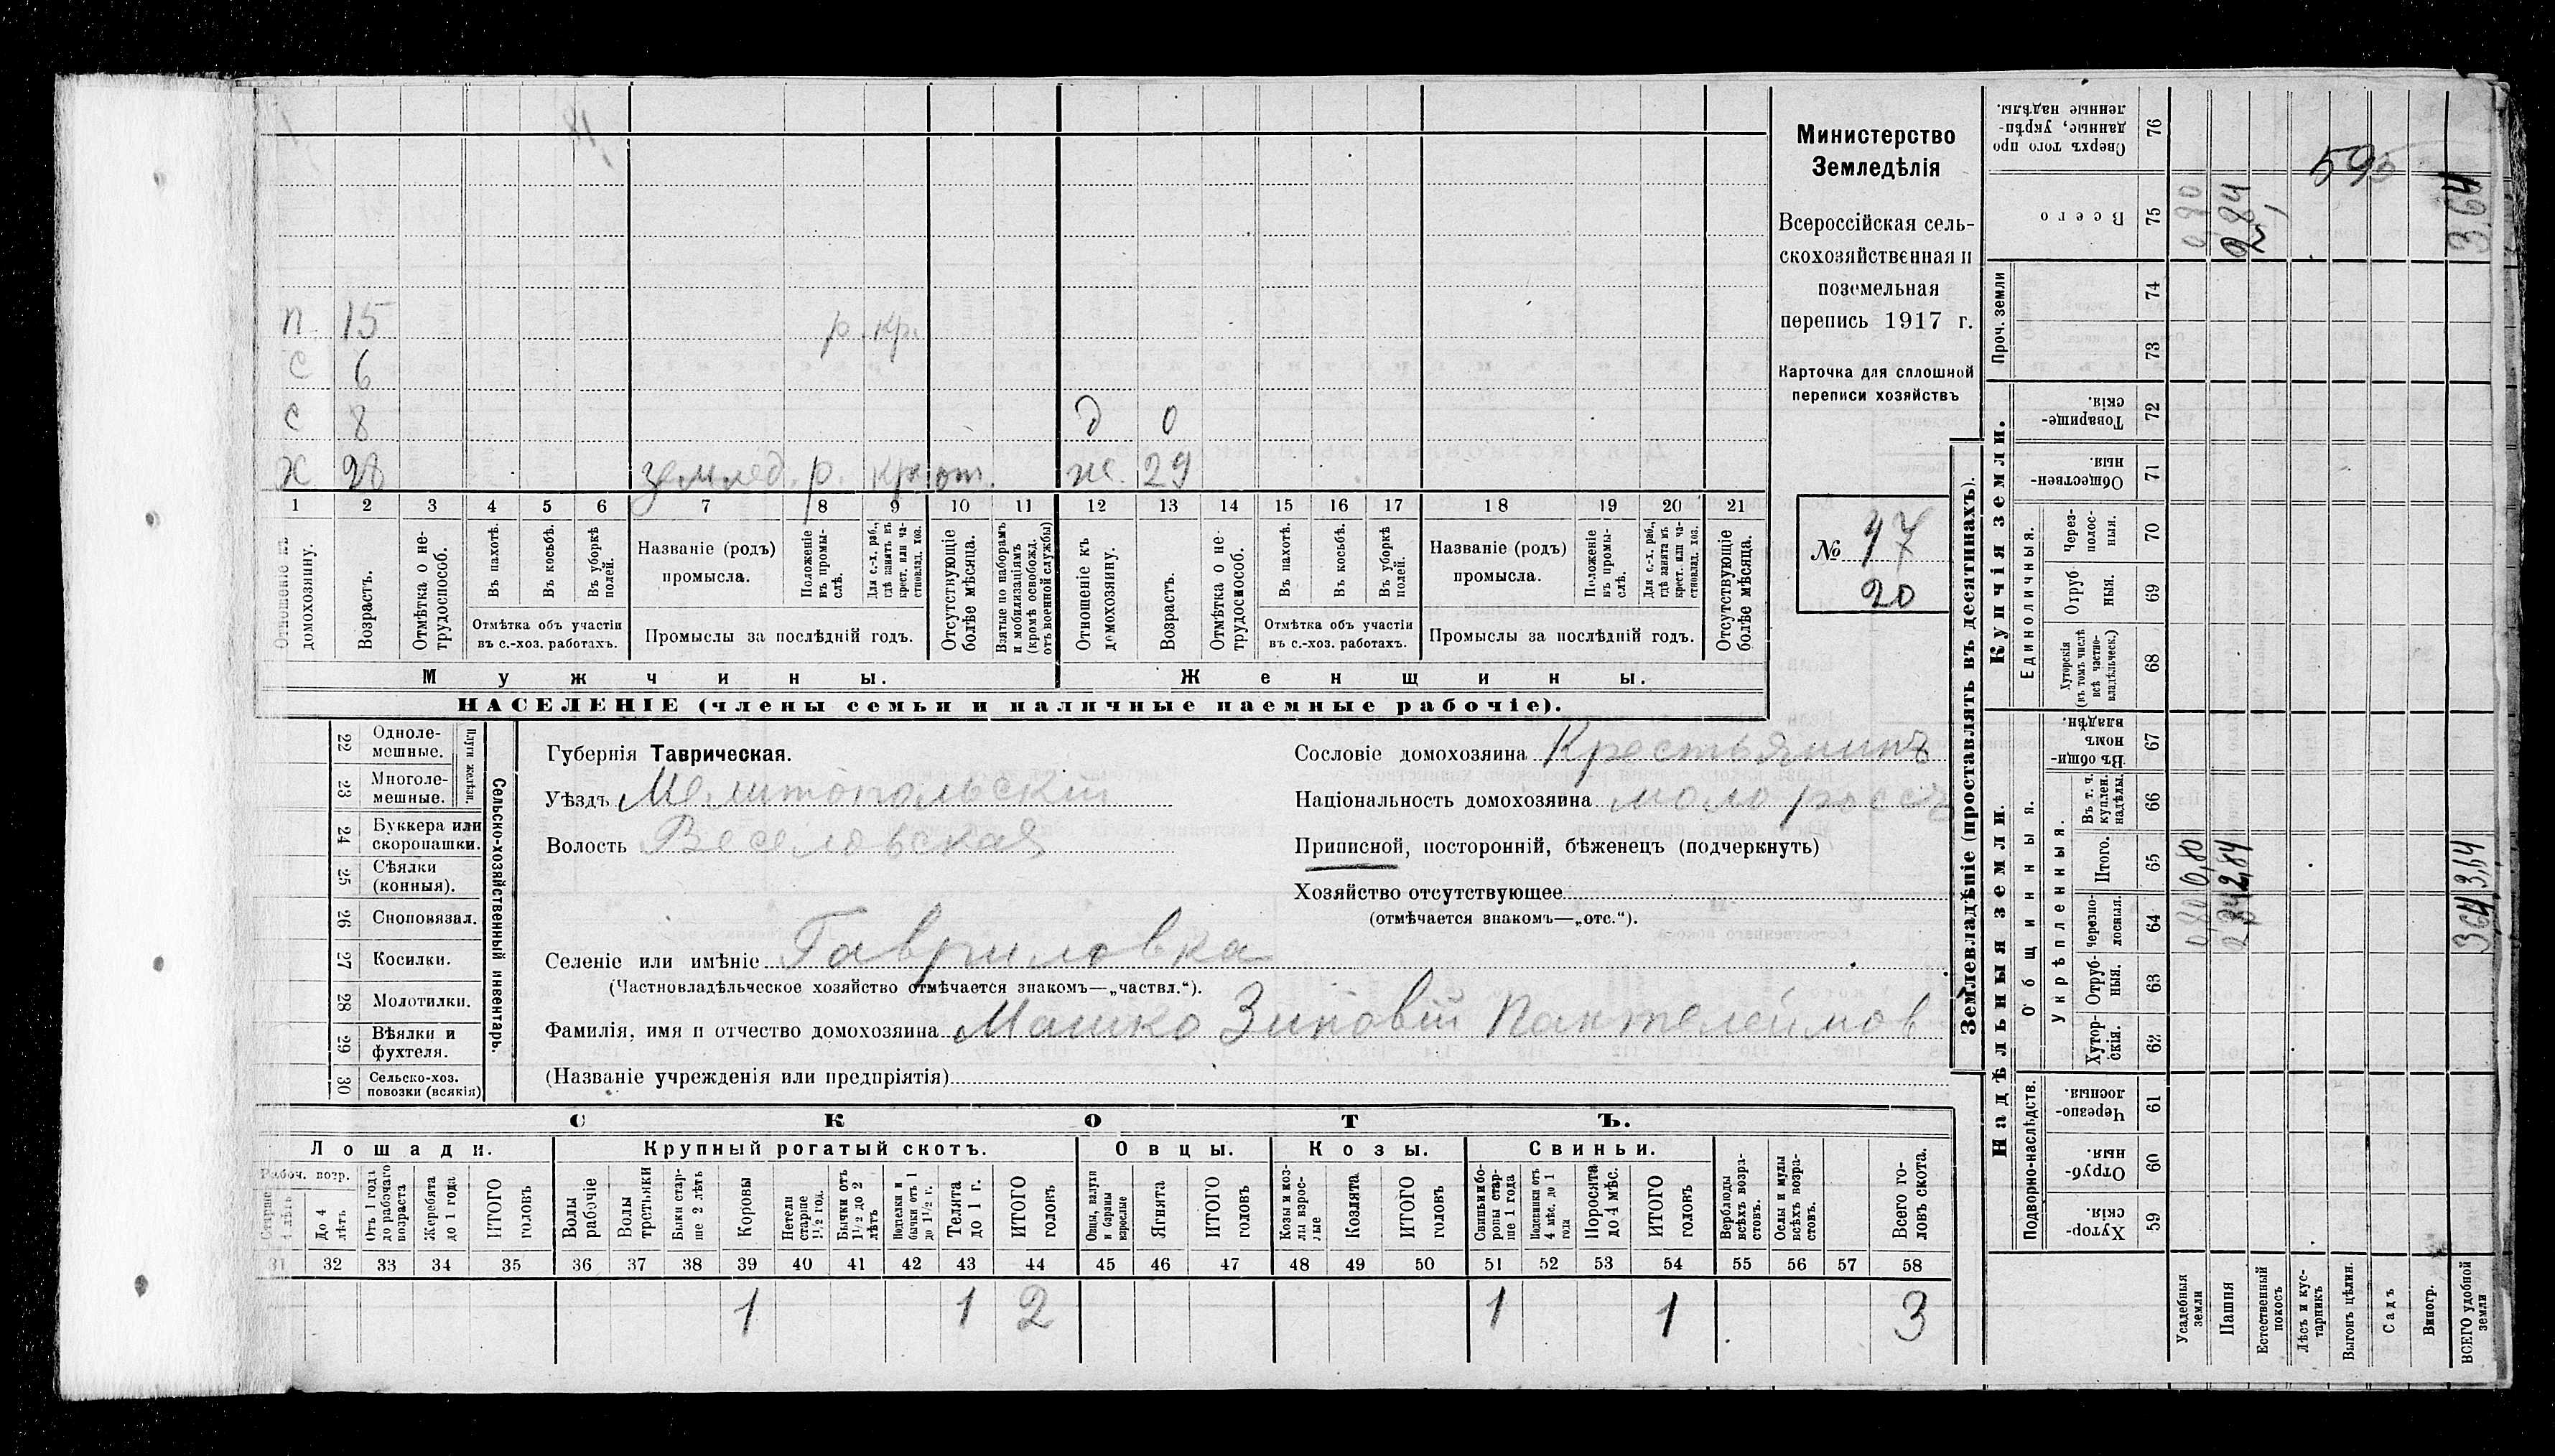 Министерство
Земледѣлія
Всероссійская сель-
скохозяйственная и
поземельная
перепись 1917 г.
Карточка для сплошной
переписи хозяйствъ
№ 47
20
п. 15 р. кр.
с 6
с 8 д 0
х 28 землед. р. кр. от. ж. 29
1 2 3 4 5 6 7 8 9 10 11 12 13 14 15 16 17 18 19 20 21
Отношеніе къ домохозяину.
Возрастъ.
Отмѣтка о не-трудоспособ.
Въ пахотѣ.
Въ косьбѣ.
Въ уборкѣ полей.
Отмѣтка объ участіи
въ с.-хоз. работахъ.
Названіе (родъ)
промысла.
Положеніе въ промы-слѣ.
Для с.-х. раб., гдѣ занятъ въ крест. или ча-стновлад. хоз.
Промыслы за послѣдній годъ.
Отсутствующіе болѣе мѣсяца.
Взятые по наборамъ и мобилизаціямъ (кромѣ освобожд. отъ военной службы)
Отношеніе къ домохозяину.
Возрастъ.
Отмѣтка о не-трудоспособ.
Въ пахотѣ.
Въ косьбѣ.
Въ уборкѣ полей.
Отмѣтка объ участіи
въ с.-хоз. работахъ.
Названіе (родъ)
промысла.
Положеніе въ промы-слѣ.
Для с.-х. раб., гдѣ занята въ крест. или ча-стновлад. хоз.
Промыслы за послѣдній годъ.
Отсутствующіе болѣе мѣсяца.
Мужчины. Женщины.
НАСЕЛЕНІЕ (члены семьи и наличные наемные рабочіе).
Сельско-хозяйственный инвентарь.
Плуги желѣзн.
22 Одноле-мешные.
23 Многоле-мешные.
24 Буккера или скоропашки.
25 Сѣялки (конныя).
26 Сноповязал.
27 Косилки.
28 Молотилки.
29 Вѣялки и фухтеля.
30 Сельско-хоз. повозки (всякія)
Губернія Таврическая.
Уѣздъ Мелитопольскій
Волость Веселовская
Сословіе домохозяина Крестьянинъ
Національность домохозяина малороссъ
Приписной, посторонній, бѣженецъ (подчеркнуть)
Хозяйство отсутствующее
(отмѣчается знакомъ—„отс.“).
Селеніе или имѣніе Гавриловка
(Частновладѣльческое хозяйство отмѣчается знакомъ—„частвл.“).
Фамилія, имя и отчество домохозяина Машко Зиновій Пантелеимов
(Названіе учрежденія или предпріятія)
СКОТЪ.
Лошади. Крупный рогатый скотъ. Овцы. Козы. Свиньи.
Рабоч. возр.
Старше 4 лѣтъ
До 4 лѣтъ
Отъ 1 года до рабочаго возраста
Жеребята до 1 года
ИТОГО головъ
Волы рабочіе
Волы третьяки
Быки стар-ше 2 лѣтъ
Коровы
Нетели старше 1½ год.
Бычки отъ 1½ до 2 лѣтъ
Подтелки и бычки отъ 1 до 1½ г.
Телята до 1 г.
ИТОГО головъ
Овцы, валухи и бараны взрослые
Ягнята
ИТОГО головъ
Козы и коз-лы взрос-лые
Козлята
ИТОГО головъ
Свиньи и бо-ровы стар-ше 1 года
Подсвинки отъ 4 мѣс. до 1 года
Поросята до 4 мѣс.
ИТОГО головъ
Верблюды всѣхъ возра-стовъ.
Ослы и мулы всѣхъ возра-стовъ.
Всего го-ловъ скота.
31 32 33 34 35 36 37 38 39 40 41 42 43 44 45 46 47 48 49 50 51 52 53 54 55 56 57 58
1 1 2 1 1 3
Землевладѣніе (проставлять въ десятинахъ).
Надѣльныя земли. Купчія земли. Проч. земли
Подворно-наслѣдств.
Общинныя.
Укрѣпленныя.
Единоличныя.
Сверхъ того про-данные, укрѣп-ленные надѣлы. 76
Всего 75
74
73
Товарище-скія. 72
Обществен-ныя 71
Через-полос-ныя. 70
Отруб-ныя. 69
Хуторскія (въ томъ числѣ всѣ частно-владѣльческ.) 68
Въ общин-номъ владѣн. 67
Въ т. ч. куплен. надѣлы. 66
Итого. 65
Черезпо-лосныя. 64
Отруб-ныя. 63
Хутор-скія. 62
Черезпо-лосныя 61
Отруб-ныя. 60
Хутор-скія 59
Усадебныя земли
Пашня
Естественный покосъ
Лѣсъ и кус-тарникъ
Выгонъ цѣлин.
Садъ
Виногр.
ВСЕГО удобной земли
0,80 2,84 595 3.64
0,80 2,84 3,64
0,80 2,84 3,64